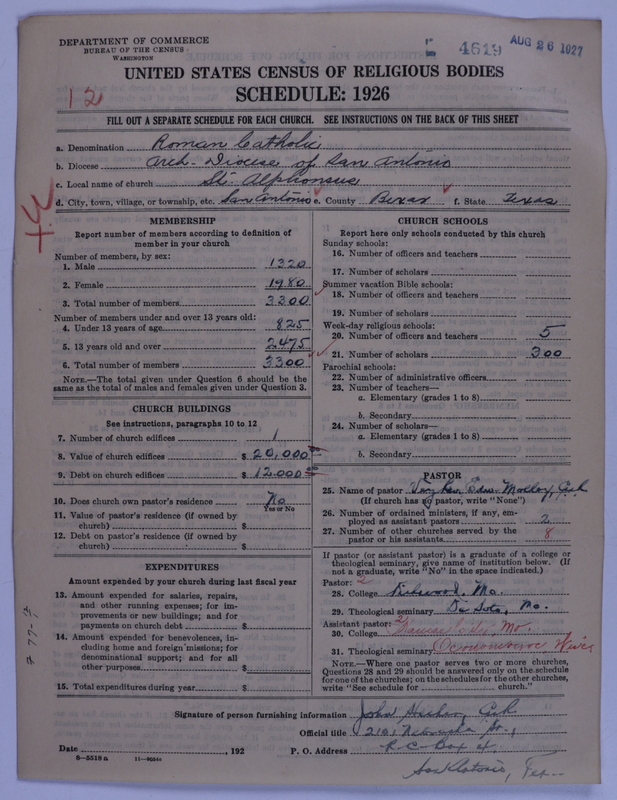 DEPARTMENT OF COMMERCE
BUREAU OF THE CENSUS
WASHINGTON
4619
AUG 26 1927
UNITED STATES CENSUS OF RELIGIOUS BODIES
SCHEDULE: 1926
12
FILL OUT A SEPARATE SCHEDULE FOR EACH CHURCH. SEE INSTRUCTIONS ON THE BACK OF THIS SHEET
a. Denomination Roman Catholic
b. Diocese Arch-Diocese of San Antonio
c. Local name of church St. Alphonsus
d. City, town, village, or township, etc. San Antonio e. County Bexar f. State Texas
MEMBERSHIP
Report number of members according to definition of
member in your church
Number of members, by sex:
1. Male 1320
2. Female 1980
3. Total number of members 3300
Number of members under and over 13 years old:
4. Under 13 years of age 825
5. 13 years old and over 2475
6. Total number of members 3300
NOTE.—The total given under Question 6 should be the
same as the total of males and females given under Question 3.
CHURCH BUILDINGS
See instructions, paragraphs 10 to 12
7. Number of church edifices 1
8. Value of church edifices $20,000
9. Debt on church edifices $12000
10. Does church own pastor's residence No
Yes or No
11. Value of pastor's residence (if owned by
church) $
12. Debt on pastor's residence (if owned by
church) $
EXPENDITURES
Amount expended by your church during last fiscal year
13. Amount expended for salaries, repairs,
and other running expenses; for im-
provements or new buildings; and for
payments on church debt $
14. Amount expended for benevolences, in-
cluding home and foreign missions; for
denominational support; and for all
other purposes $
15. Total expenditures during year $
CHURCH SCHOOLS
Report here only schools conducted by this church
Sunday schools:
16. Number of officers and teachers
17. Number of scholars
Summer vacation Bible schools:
18. Number of officers and teachers
19. Number of scholars
Week-day religious schools:
20. Number of officers and teachers 5
21. Number of scholars 300
Parochial schools:
22. Number of administrative officers
23. Number of teachers—
a. Elementary (grades 1 to 8)
b. Secondary
24. Number of scholars—
a. Elementary (grades 1 to 8)
b. Secondary
PASTOR
25. Name of pastor Very Rev. Edw. Molloy,
(If church has no pastor, write "None")
26. Number of ordained ministers, if any, em-
ployed as assistant pastors 2
27. Number of other churches served by the
pastor or his assistants 8
If pastor (or assistant pastor) is a graduate of a college or
theological seminary, give name of institution below. (If
not a graduate, write "No" in the space indicated.)
Pastor: 2
28. College Kirkwood, Mo.
29. Theological seminary De Soto, Mo.
Assistant pastor: 2
30. College Kansas City Mo
31. Theological seminary Oconomowoc Wis
NOTE.—Where one pastor serves two or more churches,
Questions 28 and 29 should be answered only on the schedule
for one of the churches; on the schedules for the other churches,
write "See schedule for church."
Signature of person furnishing information John
Official title 2101 Nebraska St.,
Date , 192 P. O. Address R C Box
8—5518a
San Antonio, Tex